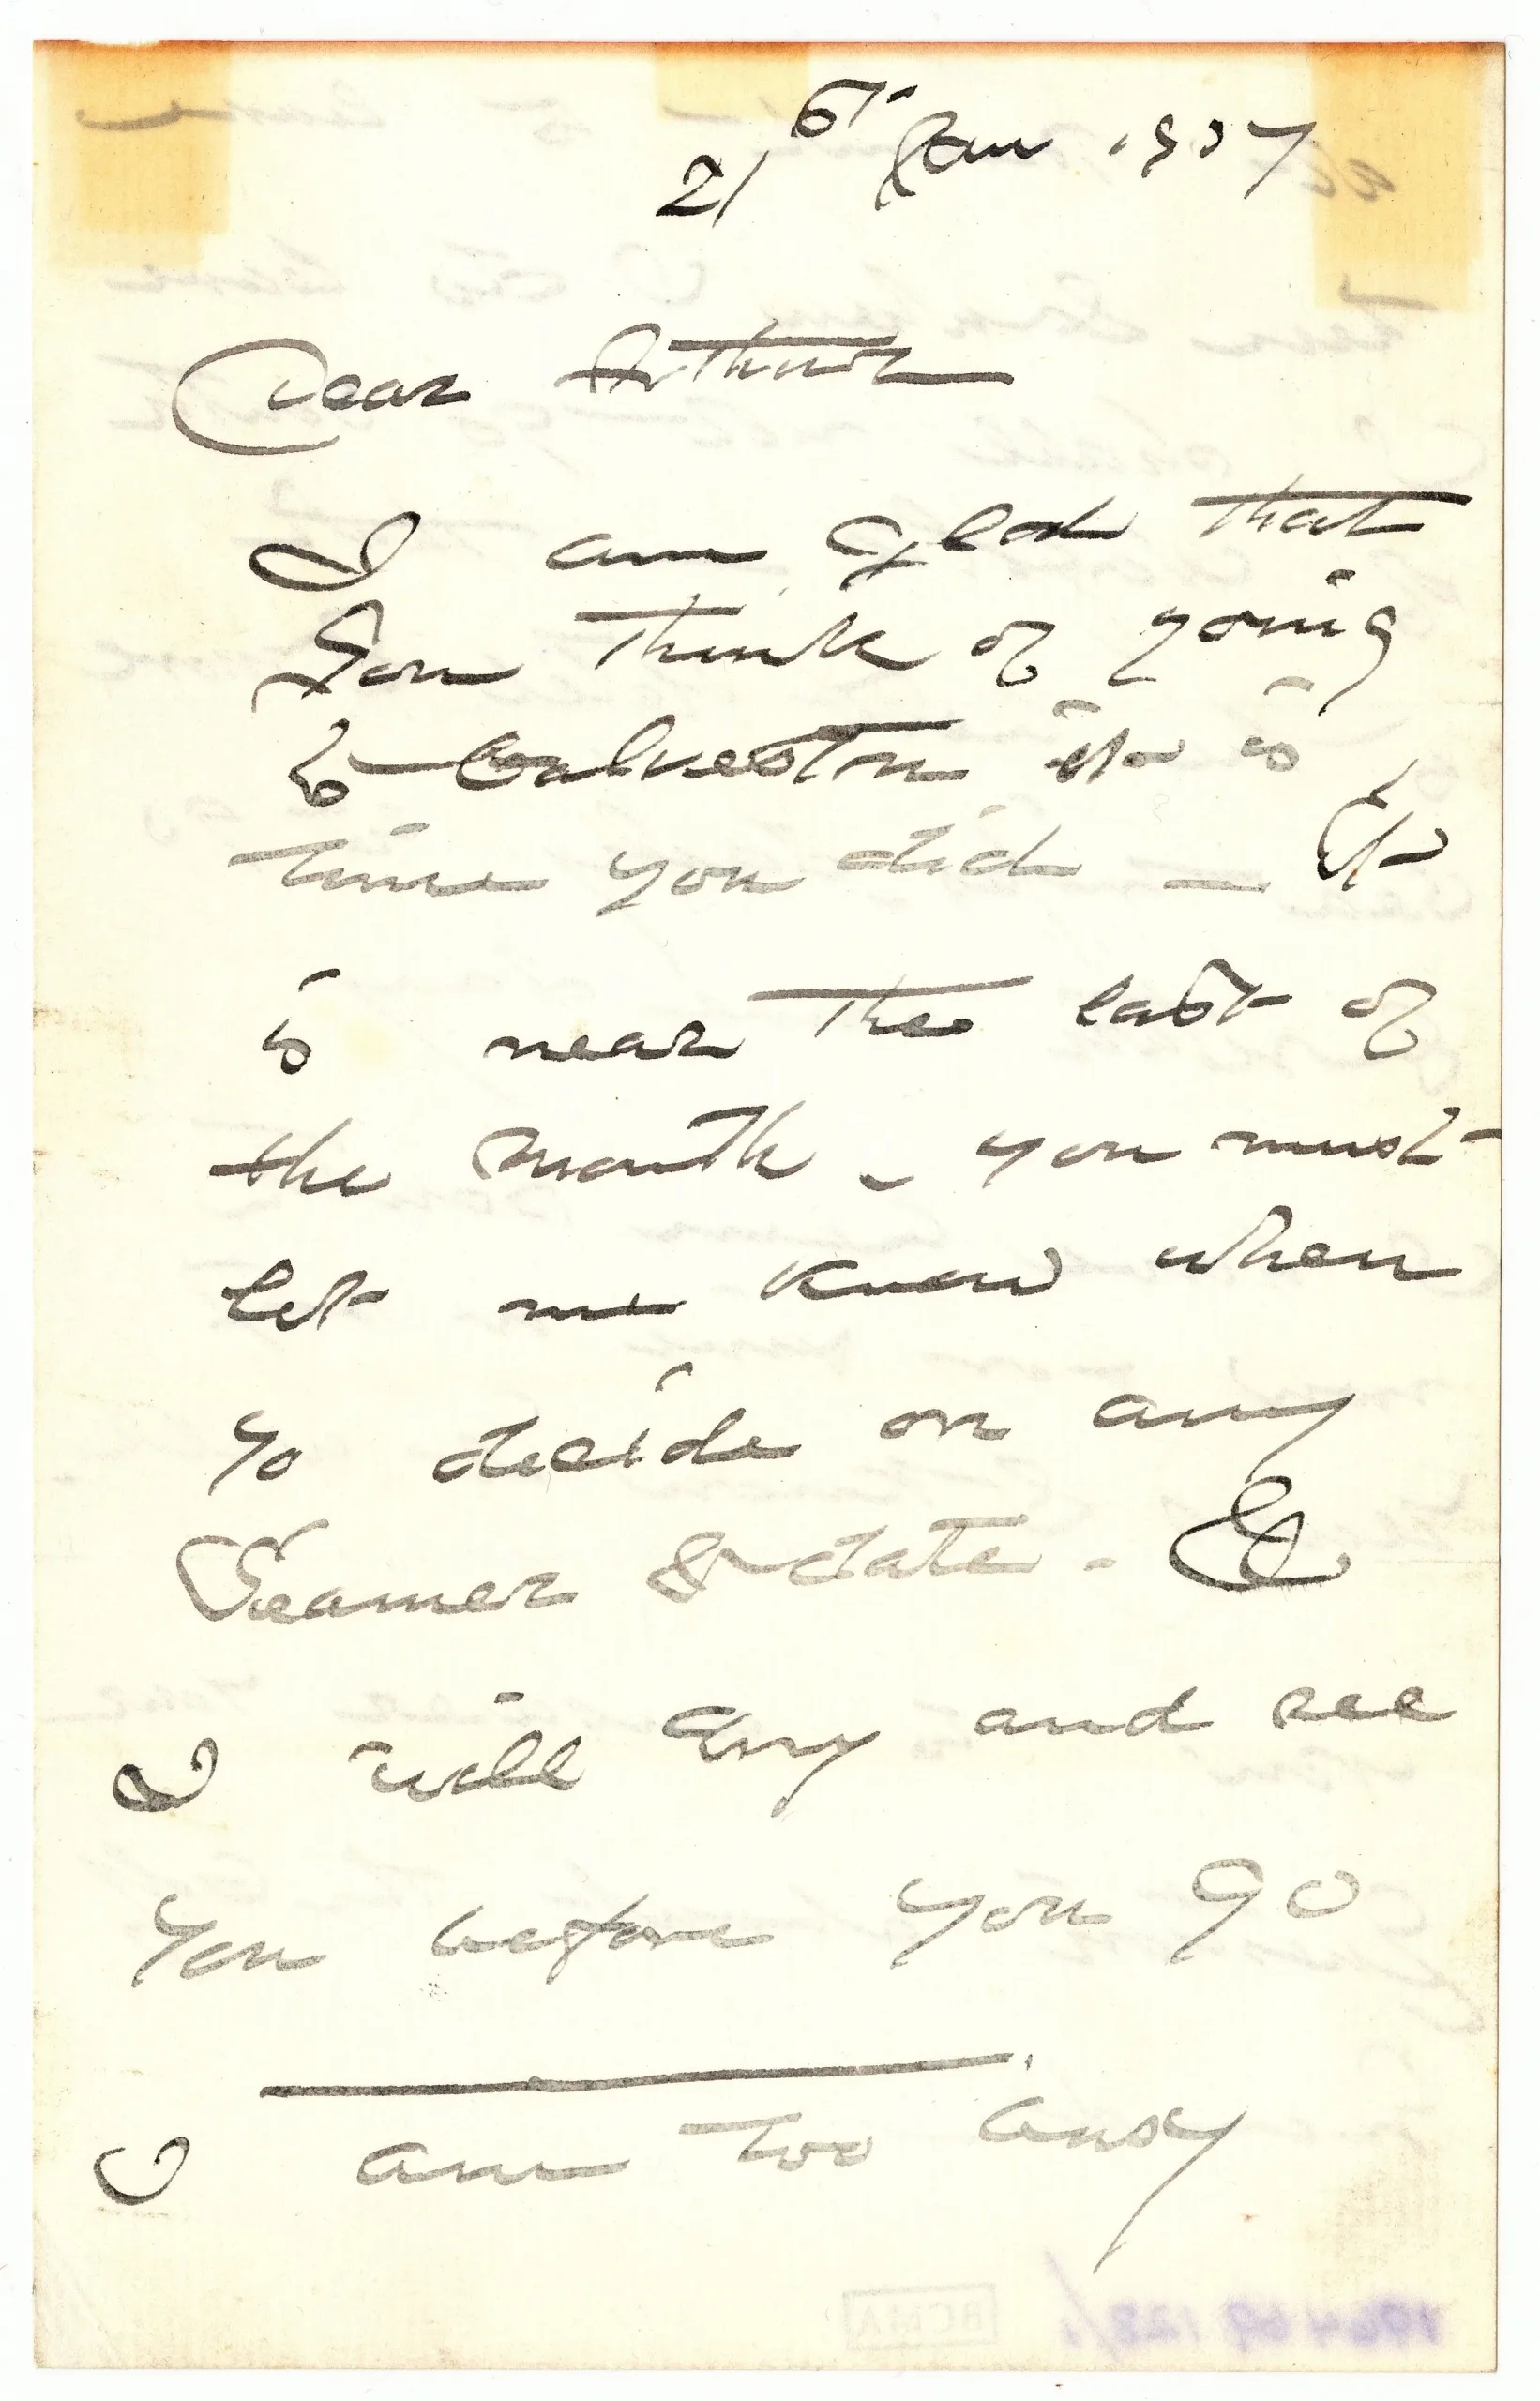 21st Jan 1907
Dear Arthur
I am glad that
you think of going
to Galveston it is
time you did — It
is near the last of
the month - you must
let me know when
yo decide on any
Steamer & date -
I will try and see
you before you go
I am too busy
BCMA